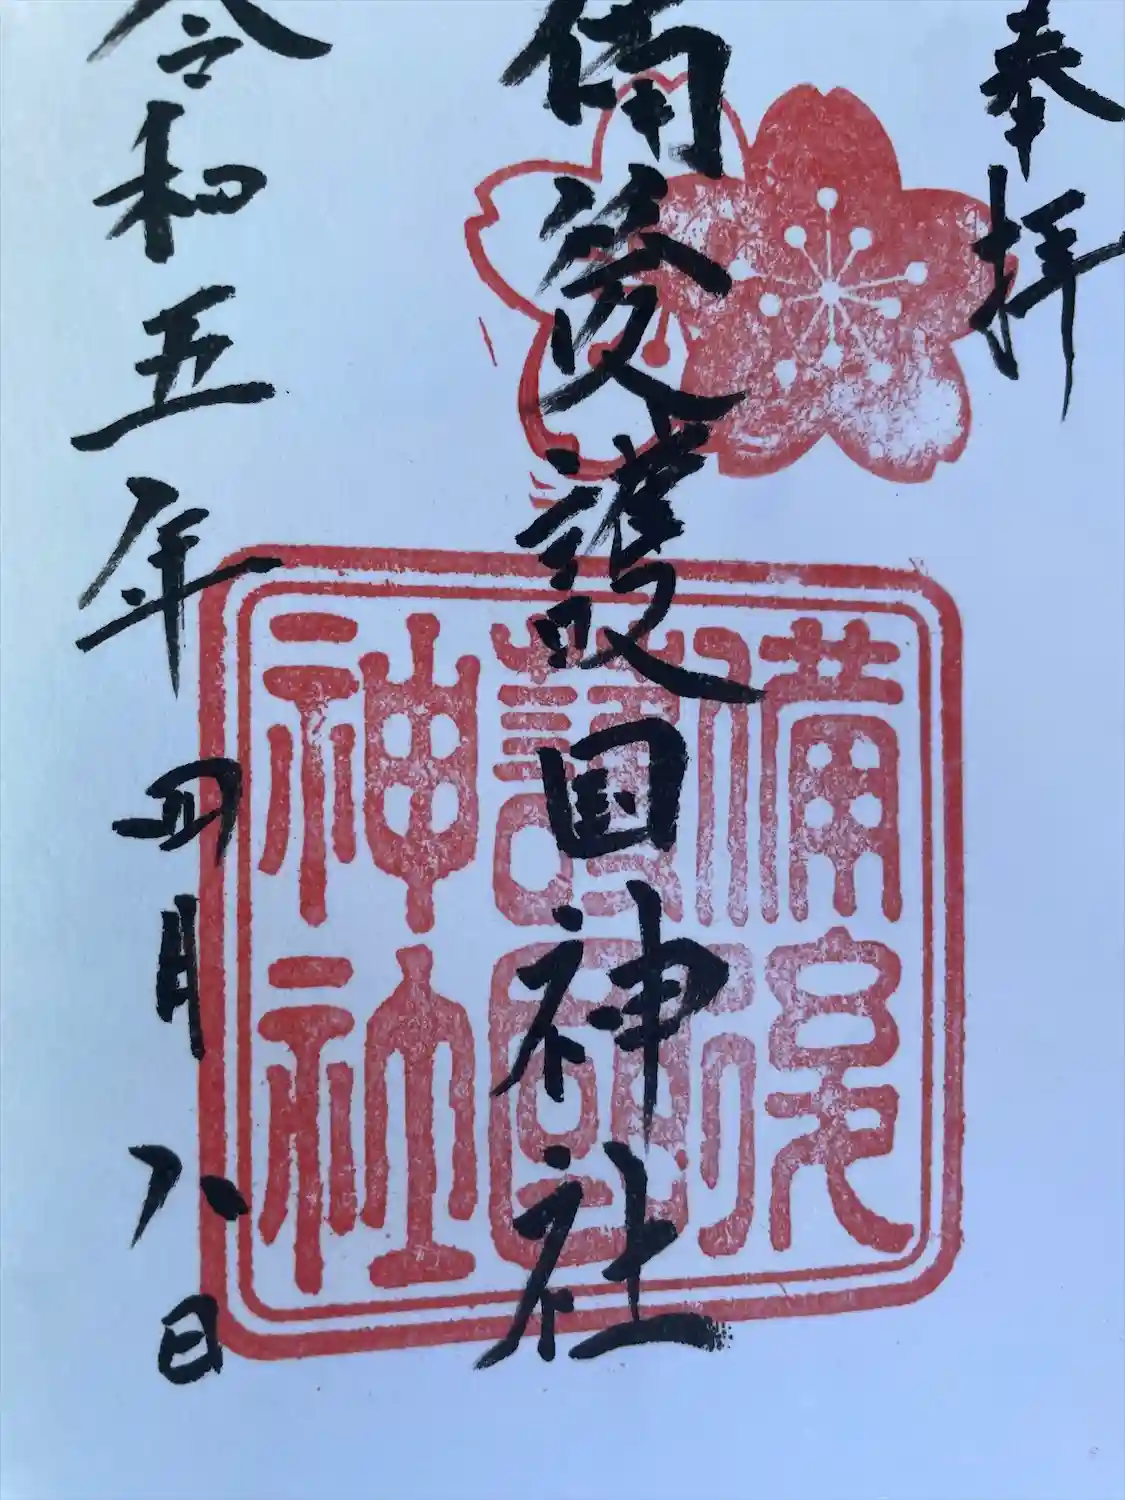 奉拝
備後護国神社
備後
護国
神社
令和五年四月八日